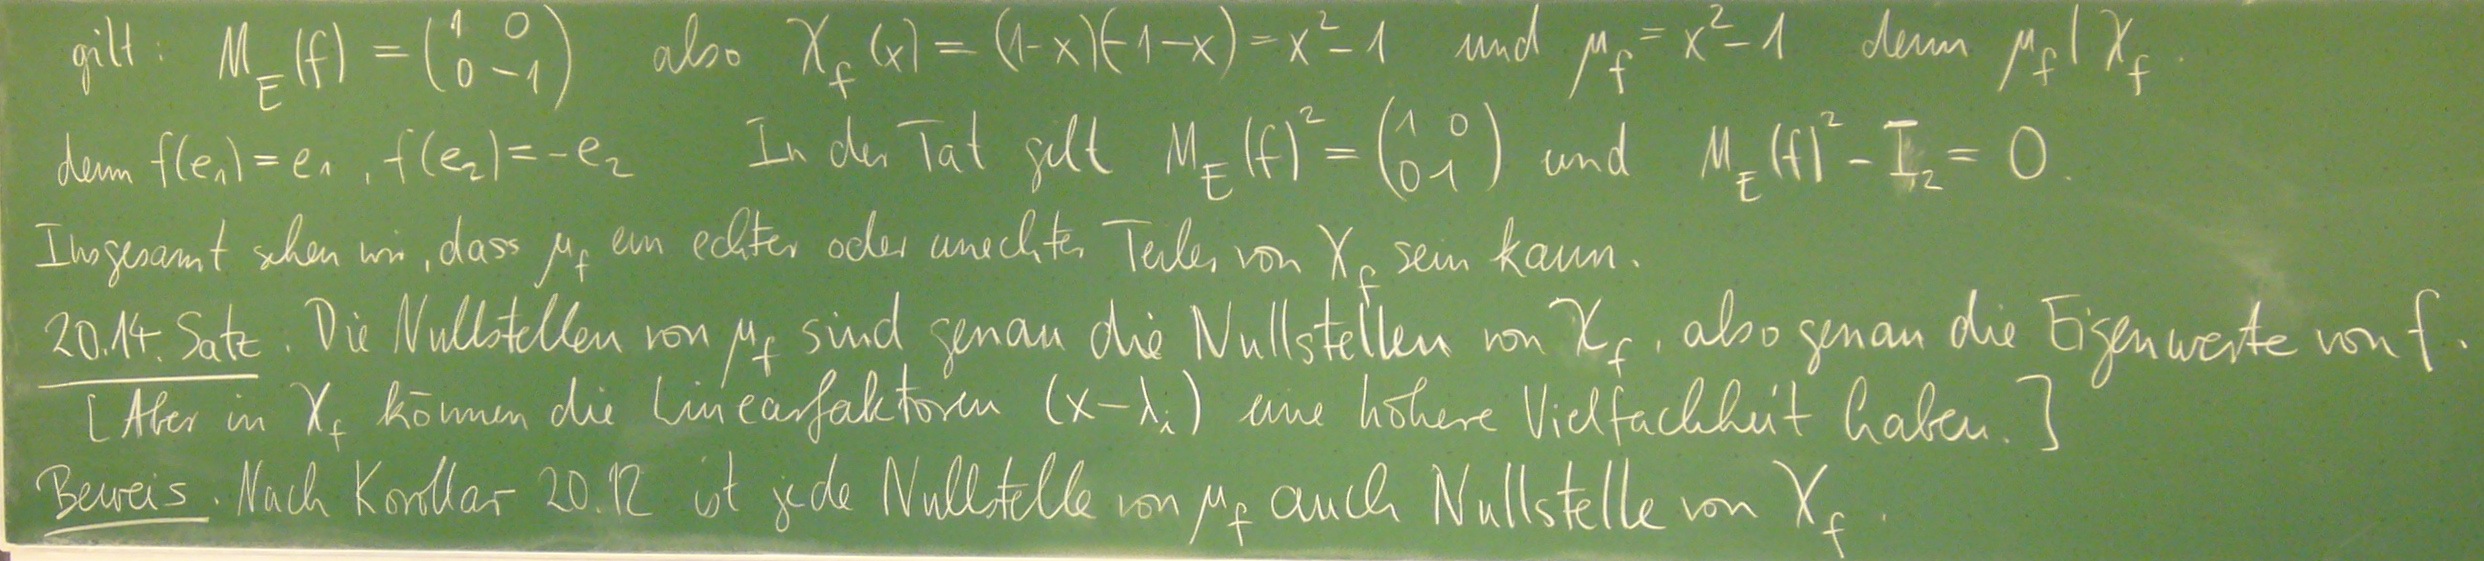 gilt: M_E(f) = (1 0 0 -1) also χ_f(x) = (1-x)(-1-x) = x²-1 und μ_f = x²-1 denn μ_f | χ_f.
denn f(e₁) = e₁, f(e₂) = -e₂ In der Tat gilt M_E(f)² = (1 0 0 1) und M_E(f)² - I₂ = 0.
Insgesamt sehen wir, dass μ_f ein echter oder unechter Teiler von χ_f sein kann.
20.14. Satz. Die Nullstellen von μ_f sind genau die Nullstellen von χ_f, also genau die Eigenwerte von f.
[Aber in χ_f können die Linearfaktoren (x-λ_i) eine höhere Vielfachheit haben.]
Beweis. Nach Korollar 20.12 ist jede Nullstelle von μ_f auch Nullstelle von χ_f.